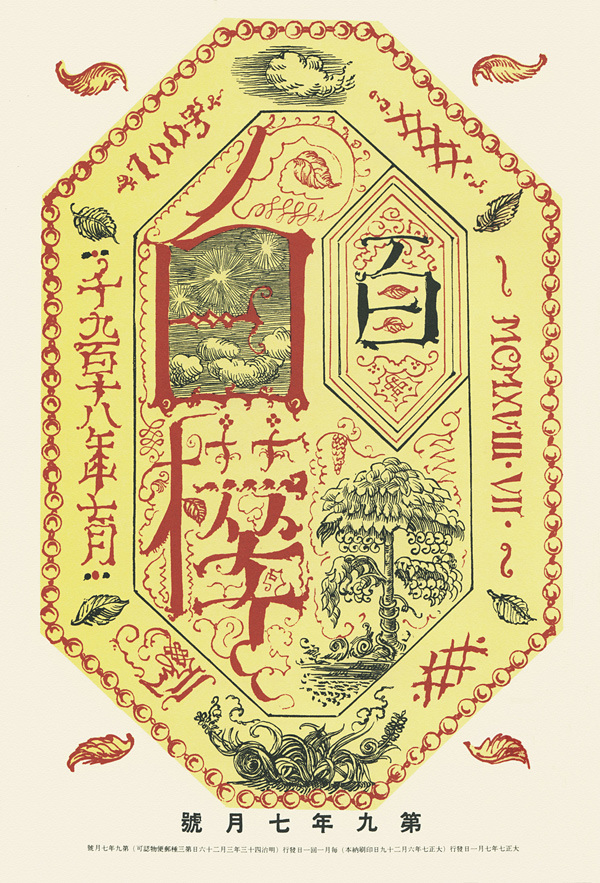 100号
百
白樺
千九百十八年七月
MCMXVIII·VII·
第九年七月號
大正七年七月一日發行(大正七年六月二十九日印刷納本)每月一回一日發行(明治四十三年三月二十六日第三種郵便物認可)第九年七月號